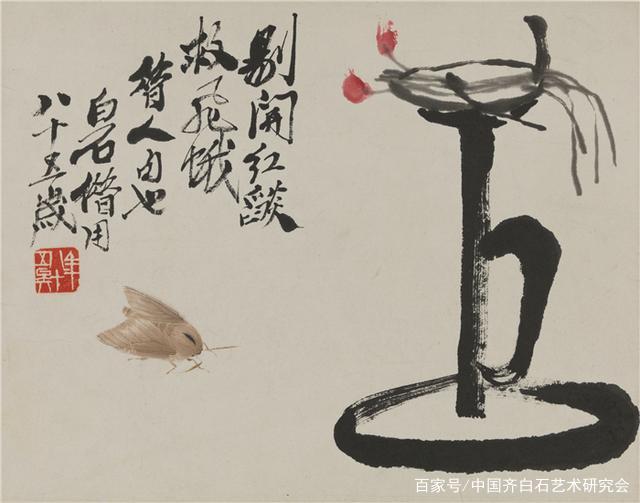 剔開紅燄
救飛蛾
昔人句也
白石借用
八十五歲
年八十五矣
百家号/中国齐白石艺术研究会